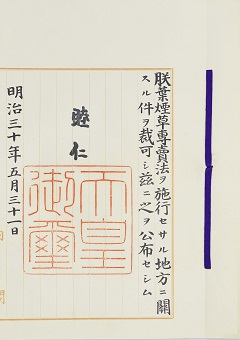 朕葉煙草專賣法ヲ施行セサル地方ニ關
スル件ヲ裁可シ茲ニ之ヲ公布セシム
睦仁
天皇
御璽
明治三十年五月三十一日